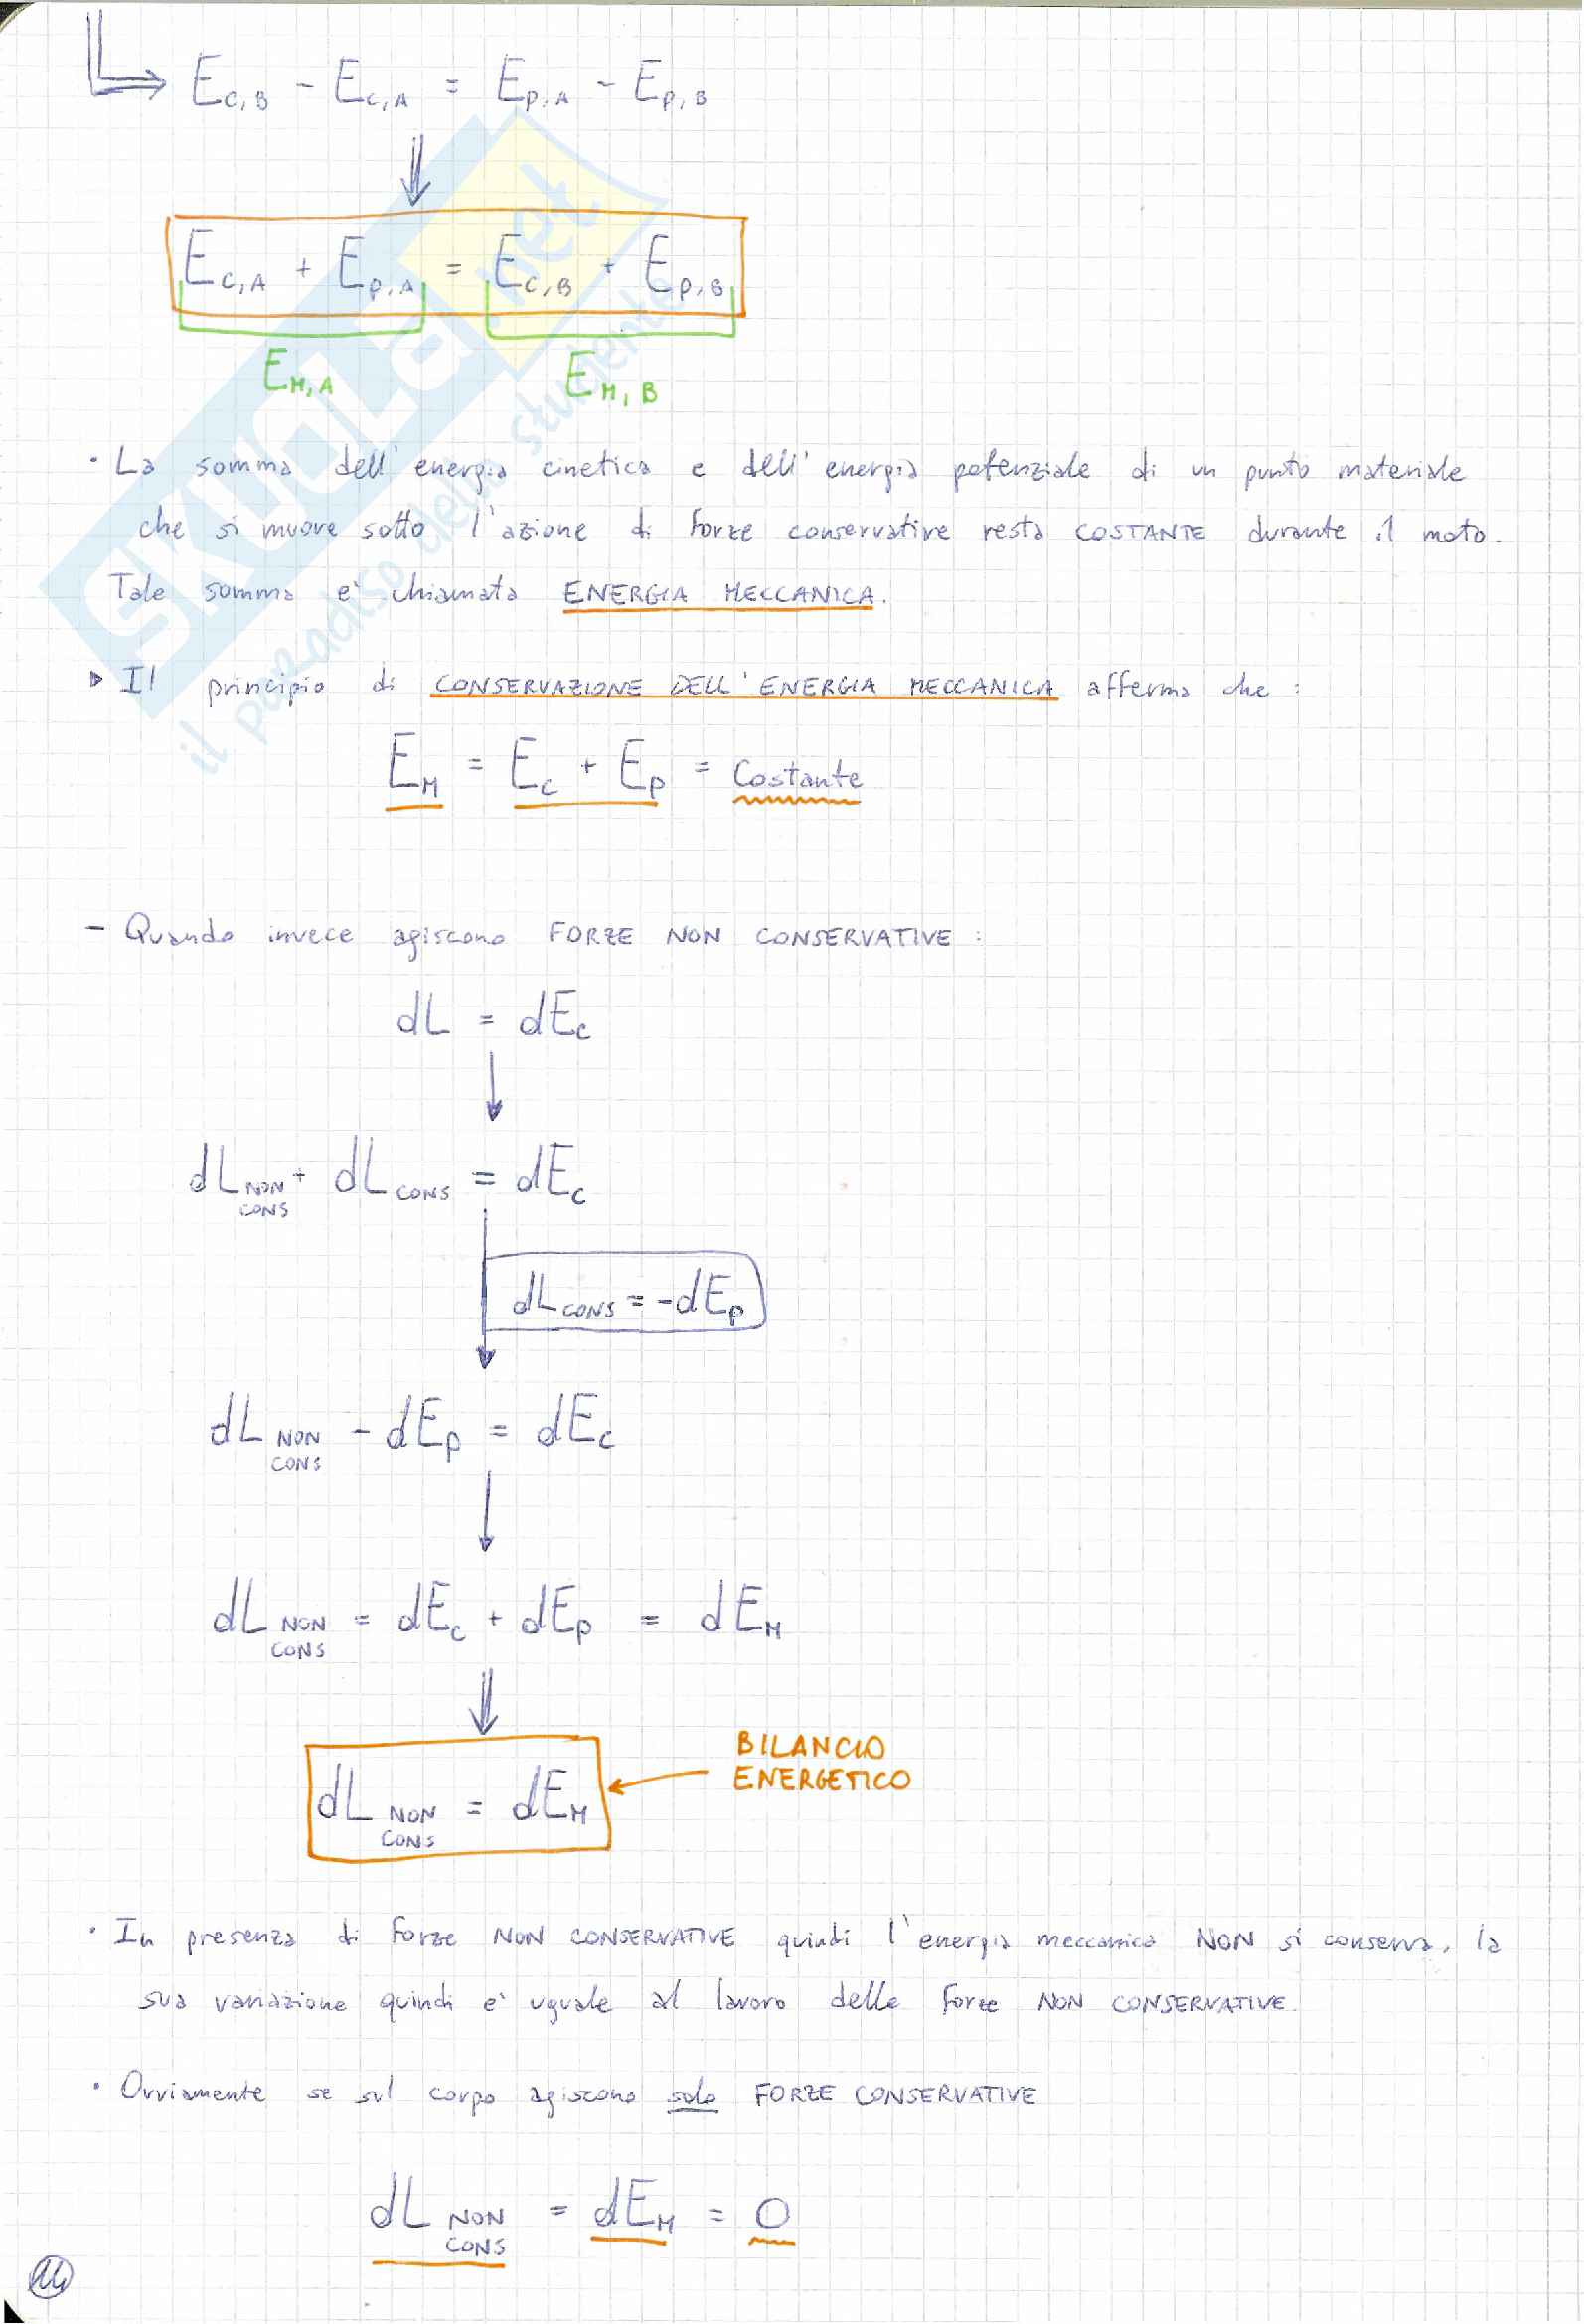 E_C,B - E_C,A = E_P,A - E_P,B
E_C,A + E_P,A = E_C,B + E_P,B
E_M,A E_M,B
• La somma dell'energia cinetica e dell'energia potenziale di un punto materiale
che si muove sotto l'azione di forze conservative resta COSTANTE durante il moto.
Tale somma e' chiamata ENERGIA MECCANICA.
▷ Il principio di CONSERVAZIONE DELL'ENERGIA MECCANICA afferma che :
E_M = E_C + E_P = Costante
- Quando invece agiscono FORZE NON CONSERVATIVE :
dL = dE_C
dL_NON CONS + dL_CONS = dE_C
dL_CONS = -dE_P
dL_NON CONS - dE_P = dE_C
dL_NON CONS = dE_C + dE_P = dE_M
BILANCIO
ENERGETICO
dL_NON CONS = dE_M
• In presenza di forze NON CONSERVATIVE quindi l'energia meccanica NON si conserva, la
sua variazione quindi e' uguale al lavoro delle forze NON CONSERVATIVE.
• Ovviamente se sul corpo agiscono solo FORZE CONSERVATIVE
dL_NON CONS = dE_M = 0
14
SKUOLA.net
il paradiso dello studente